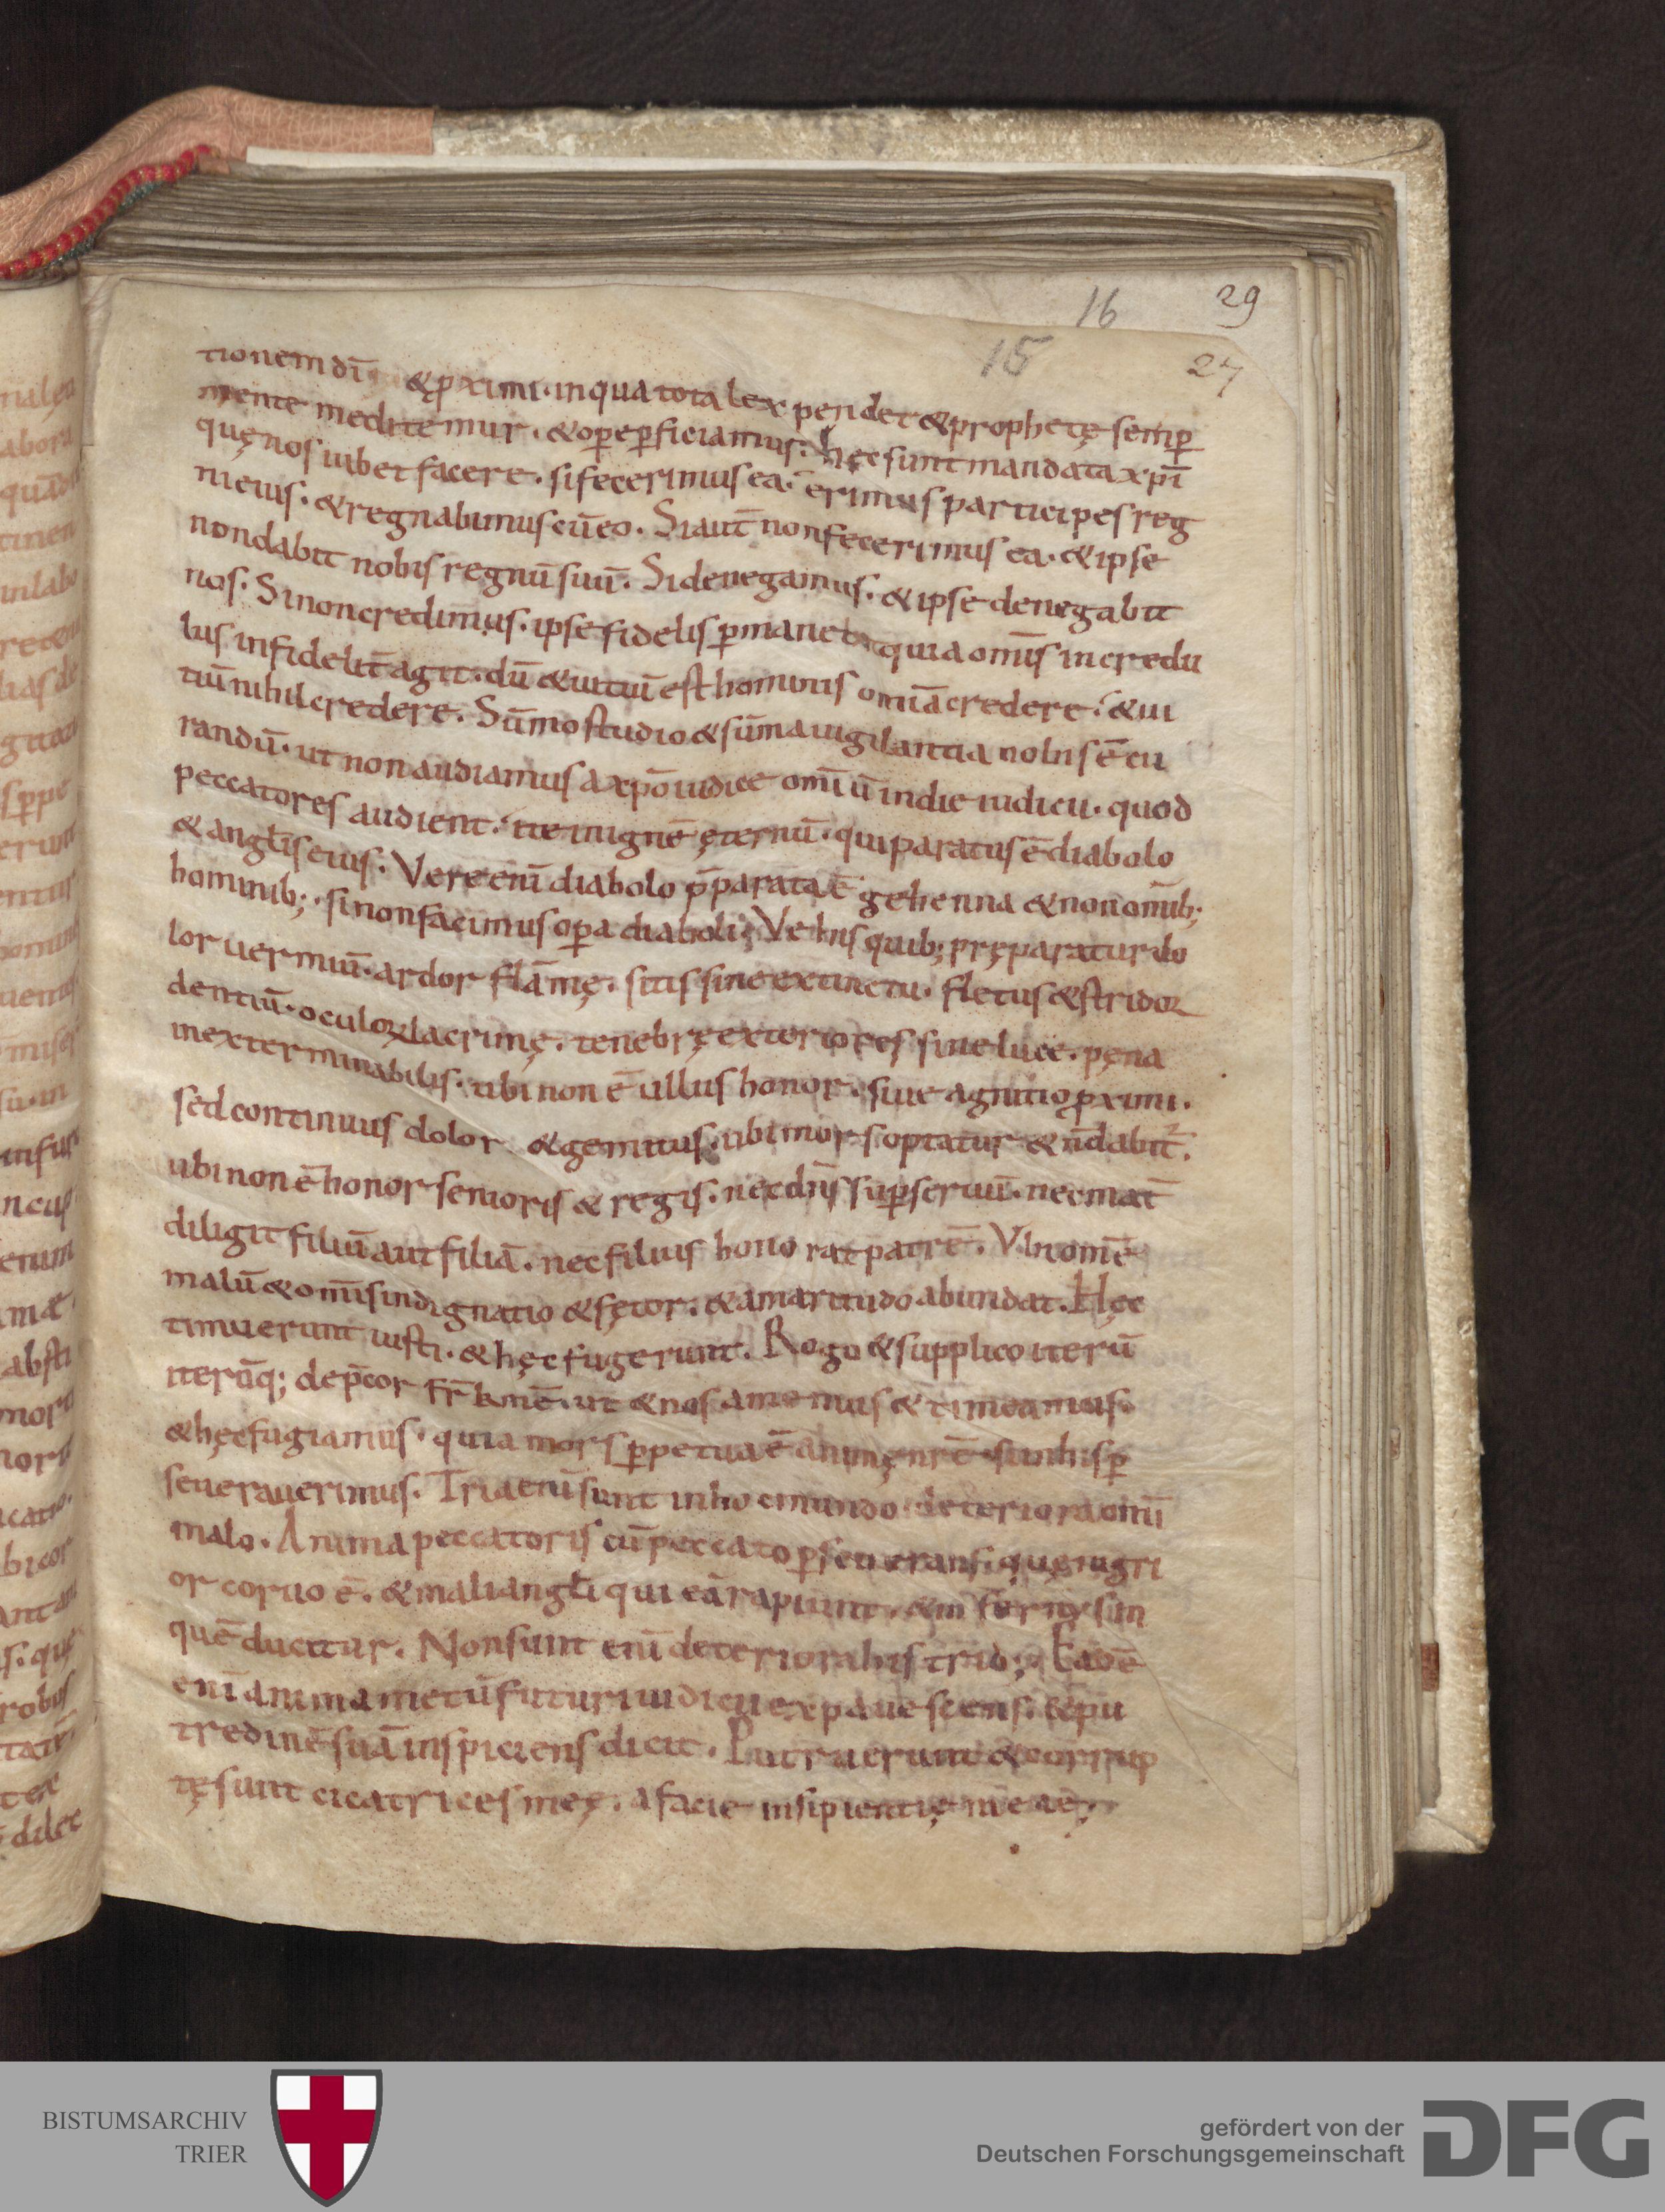 16 29
15 27
tionem dī & ꝓximi · in qua tota lex pendet & prophetę semꝑ
mente meditemur · & oꝑe ꝑficiamus : hęc sunt mandata xp̄i
quę nos iubet facere · si fecerimus ea · erimus participes reg
ni eius · & regnabimus cū eo · Si aut̄ non fecerimus ea · & ipse
non dabit nobis regnū suū · Si denegamus · & ipse denegabit
nos · Si non credimus · ipse fidelis ꝑmanet quia om̄is incredu
lus infidelit̄ agit · dū & uitiū est hominis omīa credere · & ui
tiū nihil credere · Sūmo studio & sūma uigilantia nobis ē cu
randū · ut non audiamus a xp̄o iudice omīū in die iudicii · quod
peccatores audient · ite in ignē ęternū · qui paratus ē diabolo
& angł̄is eius · Vere enī diabolo p̄parata ē gehenna & non om̄ib;
hominib; · si non facimus oꝑa diaboli ; Ve his quib; pręparatur do
lor uermiū · ardor flāmę · sitis sine extinctu · fletus & stridor
dentiū · oculoꝝ lacrimę · tenebrę exteriores sine luce · pęna
inexterminabilis · ubi non ē ullus honor · siue agnitio ꝓximi ·
sed continuus dolor & gemitus · ubi mors optatur & n̄ dabit̄ ·
ubi non ē honor senioris & regis · nec dn̄s suꝑ seruū · nec mat̄
diligit filiū aut filiā · nec filius honorat patrē · Vbi omē
malū & om̄is indignatio & fętor · & amaritudo abundat · Hęc
timuerunt iusti · & hęc fugerunt · Rogo & supplico iterū
iterūq; dep̄cor fr̄ k̄mē · ut & nos amemus & timeamus ·
& hęc fugiamus · quia mors ꝑpetua ē animę nr̄ē · si in his ꝑ
seuerauerimus · Tria enī sunt in hoc mundo deteriora omī
malo · Anima peccatoris cū peccato ꝑseuerans · quę nigri
or coruo ē · & mali angł̄i qui eā rapiunt · & infernus in
quē ducitur · Non sunt enī deteriora his trib; · Eadē
enī anima metū futuri iudicii expauescens · & pu
tredinē suā inspiciens dicit · Putruerunt & corrup
tę sunt cicatrices meę · a facie insipientię meae ·
BISTUMSARCHIV
TRIER
gefördert von der
Deutschen Forschungsgemeinschaft
DFG